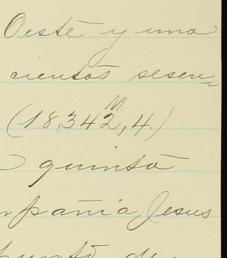 Oeste y una
cientos sesen=
M.
(18,342,4.)
quinta
mpañia Jesus